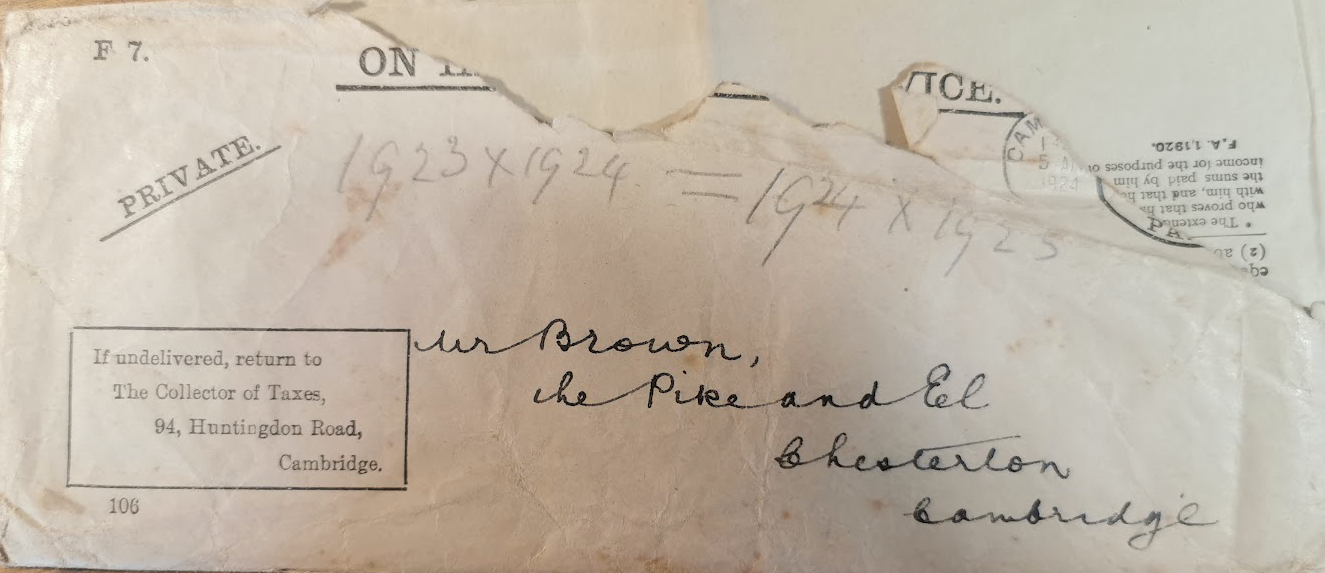 F 7.
ON
VICE.
PRIVATE.
1923 x 1924 = 1924 x 1925
CAM
5 AM
1924
PA
If undelivered, return to
The Collector of Taxes,
94, Huntingdon Road,
Cambridge.
106
Mr Brown,
The Pike and El
Chesterton
Cambridge
equ
(2) an
* The extent
who proves that h
with him, and that he
the sums paid by him
income for the purposes of
F.A. 1, 1920.